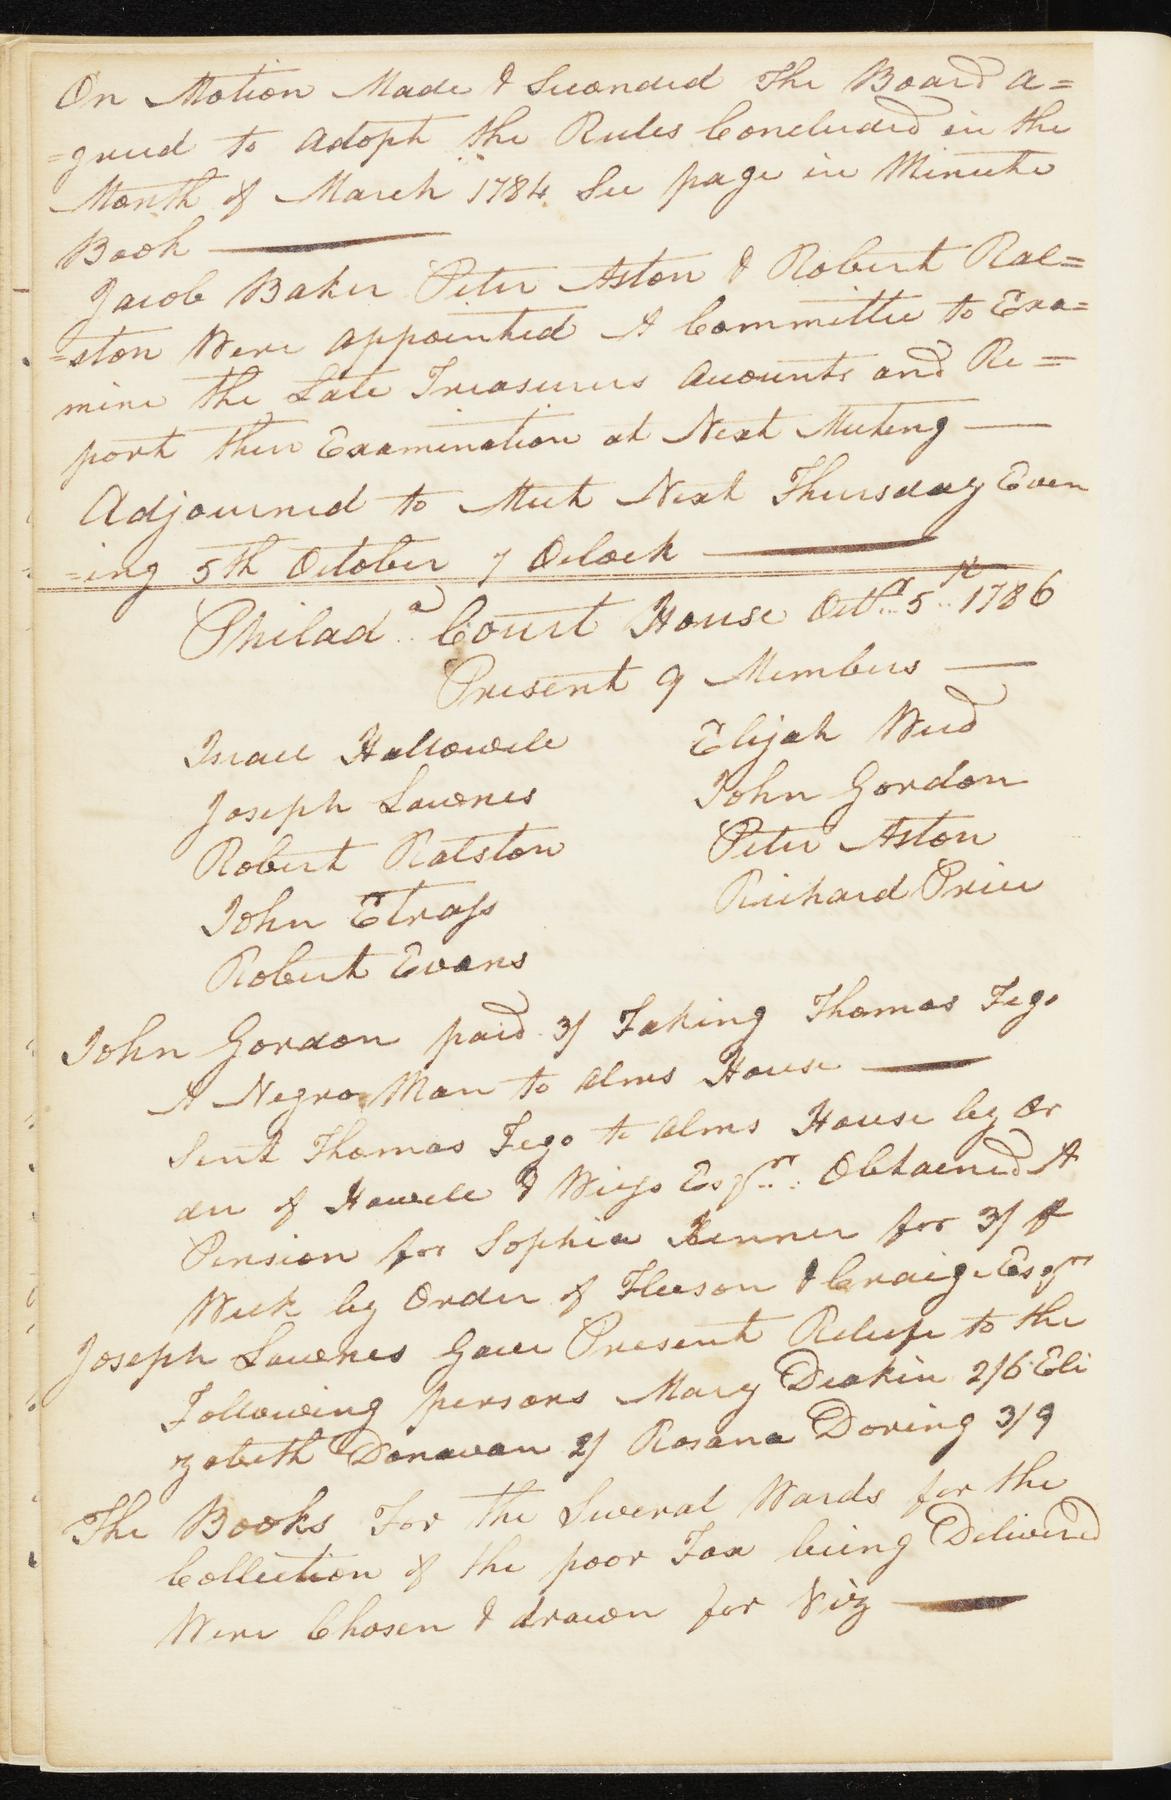 On Motion Made & Seconded The Board a=
=greed to adopt the Rules Concluded in the
Month of March 1784 See page in Minute
Book
Jacob Baker Peter Aston & Robert Ral=
=ston Were appointed A Committee to Exa=
mine the Late Treasurers Accounts and Re=
port their Examination at Next Meeting
Adjourned to Meet Next Thursday Even
=ing 5th October 7 Oclock
Philad.a Court House Octr. 5th 1786
Present 9 Members
Israel Hallowell Elijah Weed
Joseph Lownes John Gordon
Robert Ralston Peter Aston
John Strass Richard Price
Robert Evans
John Gordon paid 3/ Taking Thomas Fego
A Negro Man to Alms House
Sent Thomas Fego to Alms House by Or
der of Howell & Esqrs. Obtained A
Pension for Sophia Kenner for 3/ P
Week by Order of Fleeson & Craig Esqrs
Joseph Lownes Gave Present Releife to the
Following persons Mary Deakin 2/6 Eli
zabeth Donavan 2/ Rosana Doring 3/9
The Books For the Several Wards for the
Collection of the poor Tax being Delivered
Were Chosen & drawn for Viz